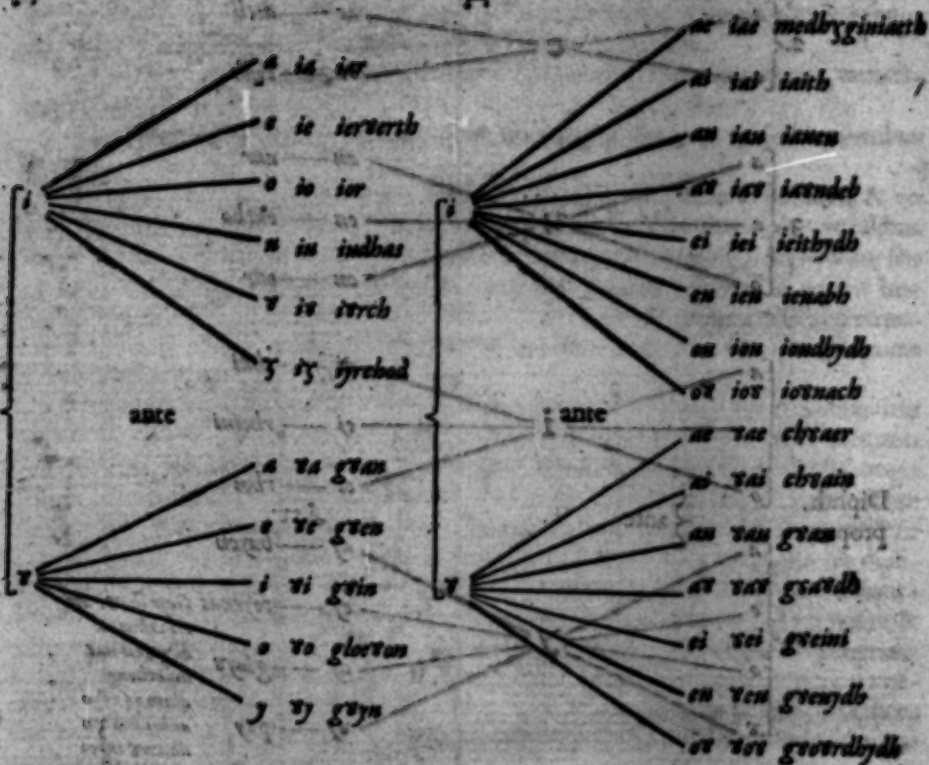 a ia iar
e ie ierỽerth
o io ior
i
u iu iudhas
ỽ iỽ iỽrch
ʒ iʒ iyrchod
ante
a ỽa gỽan
e ỽe gỽen
i ỽi gỽin
ỽ
o ỽo gloeỽon
y ỽy gỽyn
ae iae medhyginiaeth
ai iai iaith
au iau iauen
aỽ iaỽ iaỽndeb
i
ei iei ieithydh
eu ieu ieuabh
ou iou ioudhydh
oỽ ioỽ ioỽnach
ante
ae ỽae chỽaer
ai ỽai chỽain
au ỽau gỽau
aỽ ỽaỽ gỽaỽdh
ỽ
ei ỽei gỽeini
eu ỽeu gỽeuydh
oỽ ỽoỽ gỽoỽrdhydh